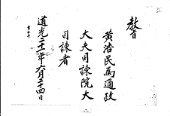 教旨
黃浩民爲通政
大夫司諫院大
司諫者
道光二十二年六月二十四日